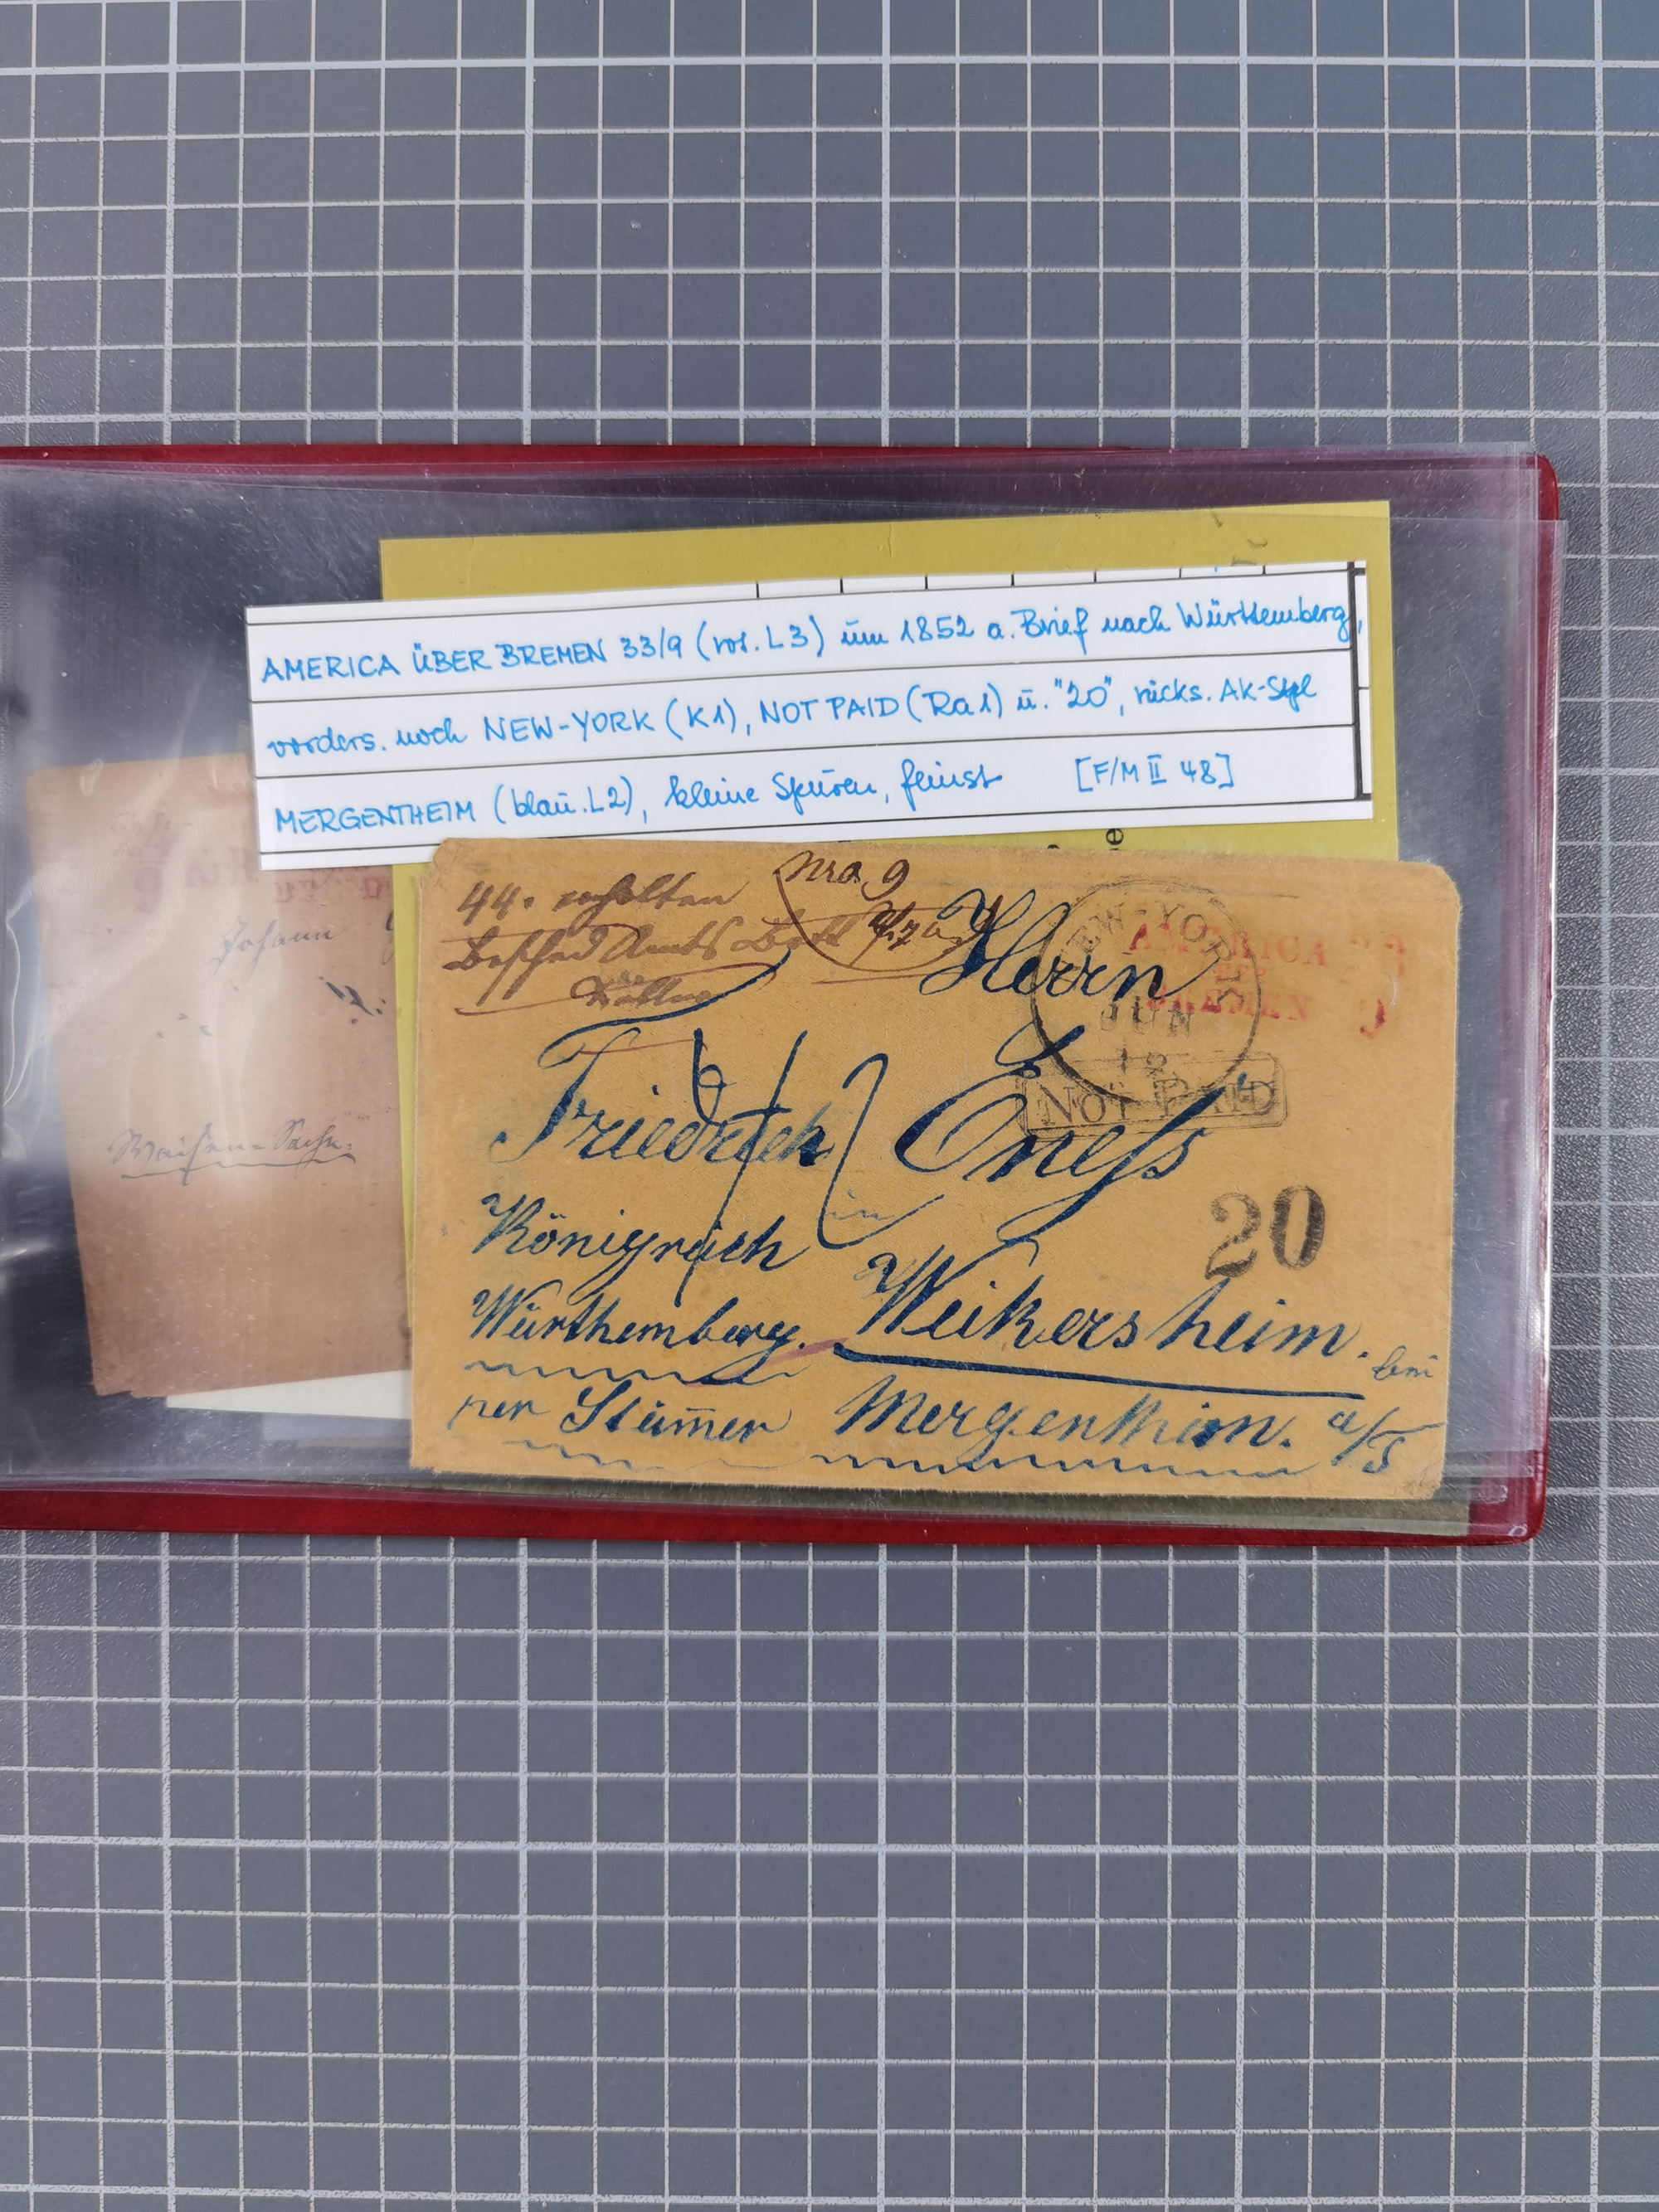 AMERICA ÜBER BREMEN 33/9 (ros. L3) um 1852 a. Brief nach Württemberg,
vorders. noch NEW-YORK (K1), NOT PAID (Ra1) u. "20", rücks. AK-Stpl
MERGENTHEIM (blau. L2), kleine Spuren, feinst [F/M II 48]
Nro. 9
44. erhalten
Herrn
NEW-YORK
JUN
AMERICA
BREMEN
33
9
NOT PAID
Friedrich Oness
in
20
Königreich
Weikersheim.
Würthemberg.
bei
per Stümer Mergentheim. a/T
Johann